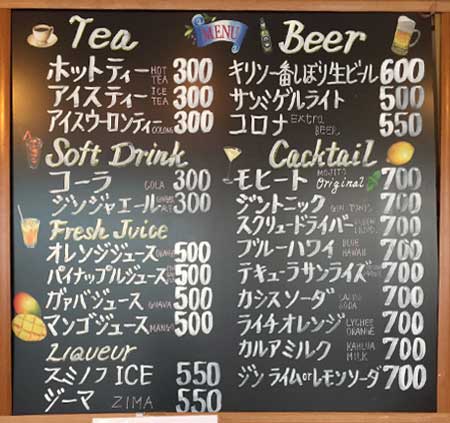 MENU
Tea
ホットティー HOT TEA 300
アイスティー ICE TEA 300
アイスウーロンティー OOLONG 300
Soft Drink
コーラ COLA 300
ジンジャエール 300
Fresh Juice
オレンジジュース 500
パイナップルジュース 500
グァバジュース GUAVA 500
マンゴジュース MANGO 500
Liqueur
スミノフ ICE 550
ジーマ ZIMA 550
Beer
キリン一番しぼり生ビール 600
サンミゲルライト 500
コロナ Extra BEER 550
Cocktail
モヒート MOJITO Original 700
ジントニック GIN TONIC 700
スクリュードライバー 700
ブルーハワイ BLUE HAWAII 700
テキューラサンライズ 700
カシスソーダ CASSIS SODA 700
ライチオレンジ LYCHEE ORANGE 700
カルアミルク KAHLUA MILK 700
ジンライムorレモンソーダ 700